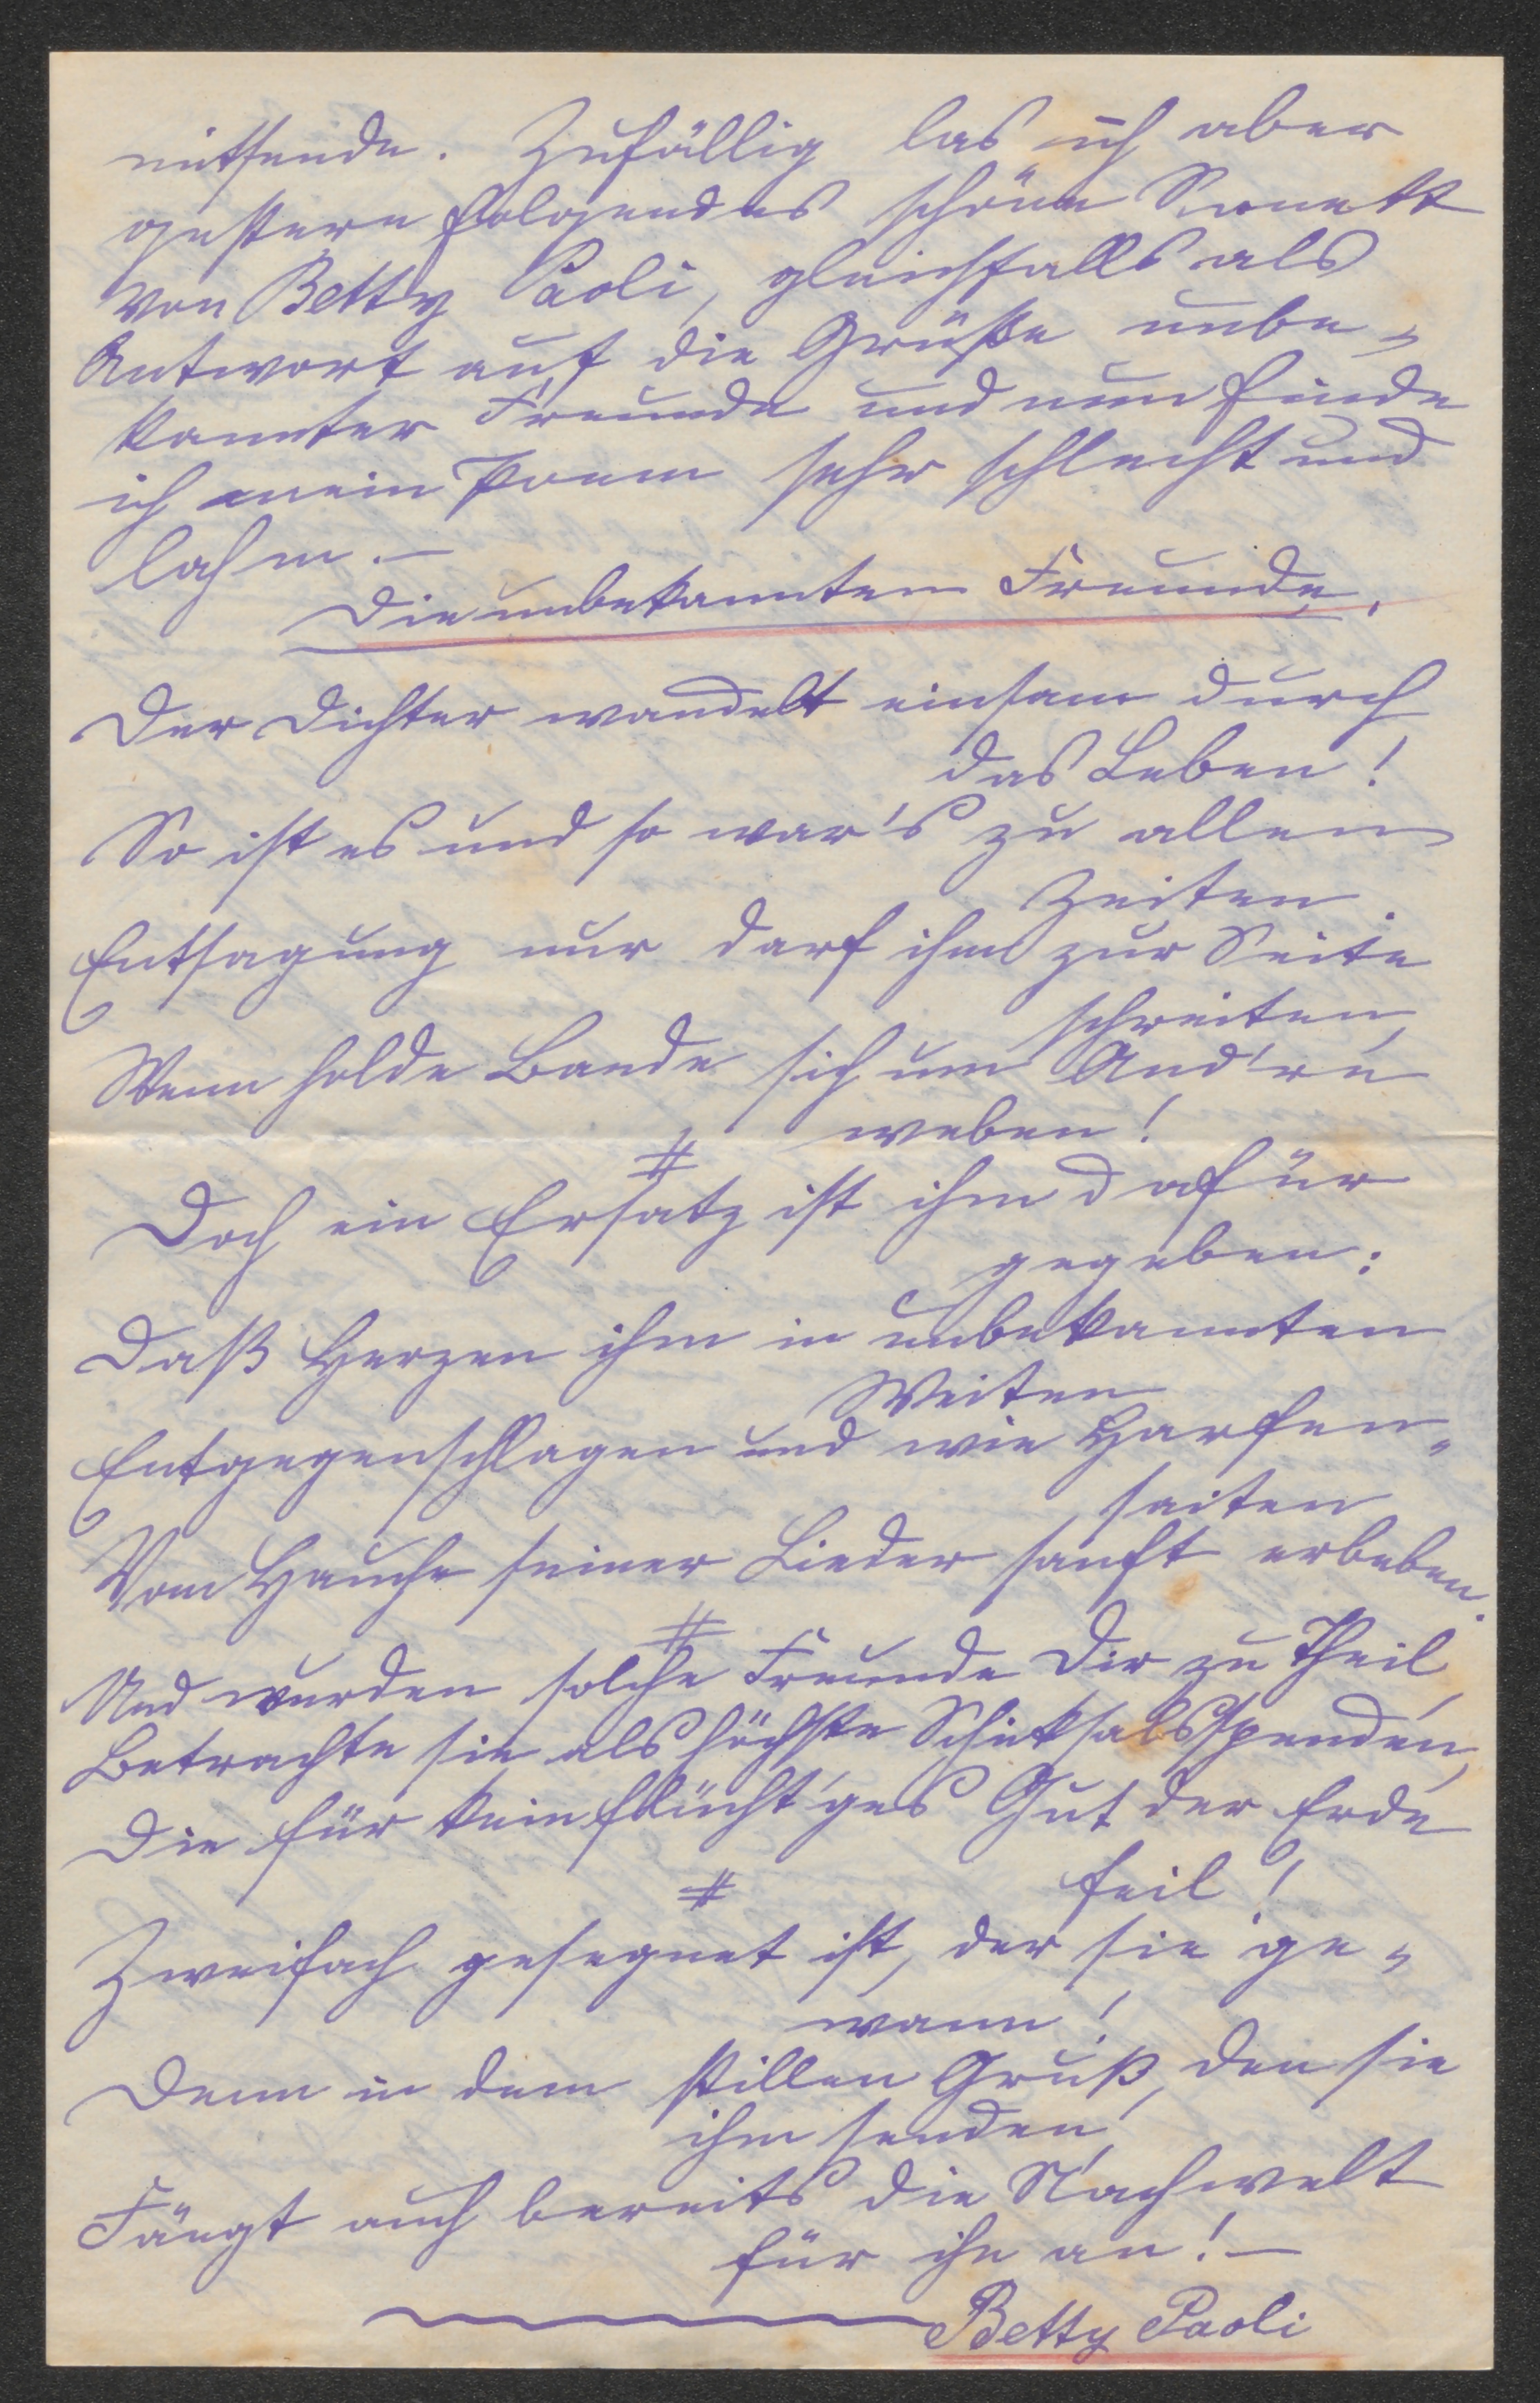 mitsende. Zufällig las ich aber
gestern folgendes schöne Sonett
von Betty Paoli, gleichfalls als
Antwort auf die Grüße unbe-
kannter Freunde und nun finde
ich mein Poem sehr schlecht und
lahm. —
Die unbekannten Freunde.
Der Dichter wandelt einsam durch
das Leben!
So ist es und so war's zu allen
Zeiten.
Entsagung nur darf ihm zur Seite
schreiten,
Wenn holde Bande sich um And're
weben!
#
Doch ein Ersatz ist ihm dafür
gegeben:
Daß Herzen ihm in unbekannten
Weiten
Entgegenschlagen und wie Harfen-
saiten
Vom Hauche seiner Lieder sanft erbeben.
#
Und wurden solche Freunde Dir zu Theil,
Betrachte sie als höchste Schiksalsspenden,
Die für kein flücht'ges Gut der Erde
feil!
#
Zweifach gesegnet ist, der sie ge-
wann!
Denn in dem stillen Gruß, den sie
ihm senden,
Fängt auch bereits die Nachwelt
für ihn an! —
Betty Paoli